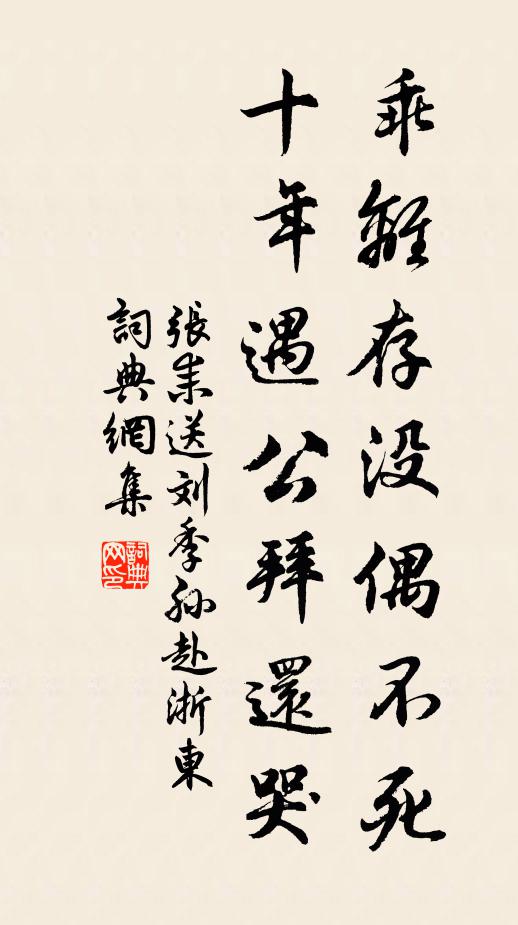 乖離存没偶不死
十年遇公拜還哭
張耒送刘季孙赴浙東
詞典網集
詞典
网印